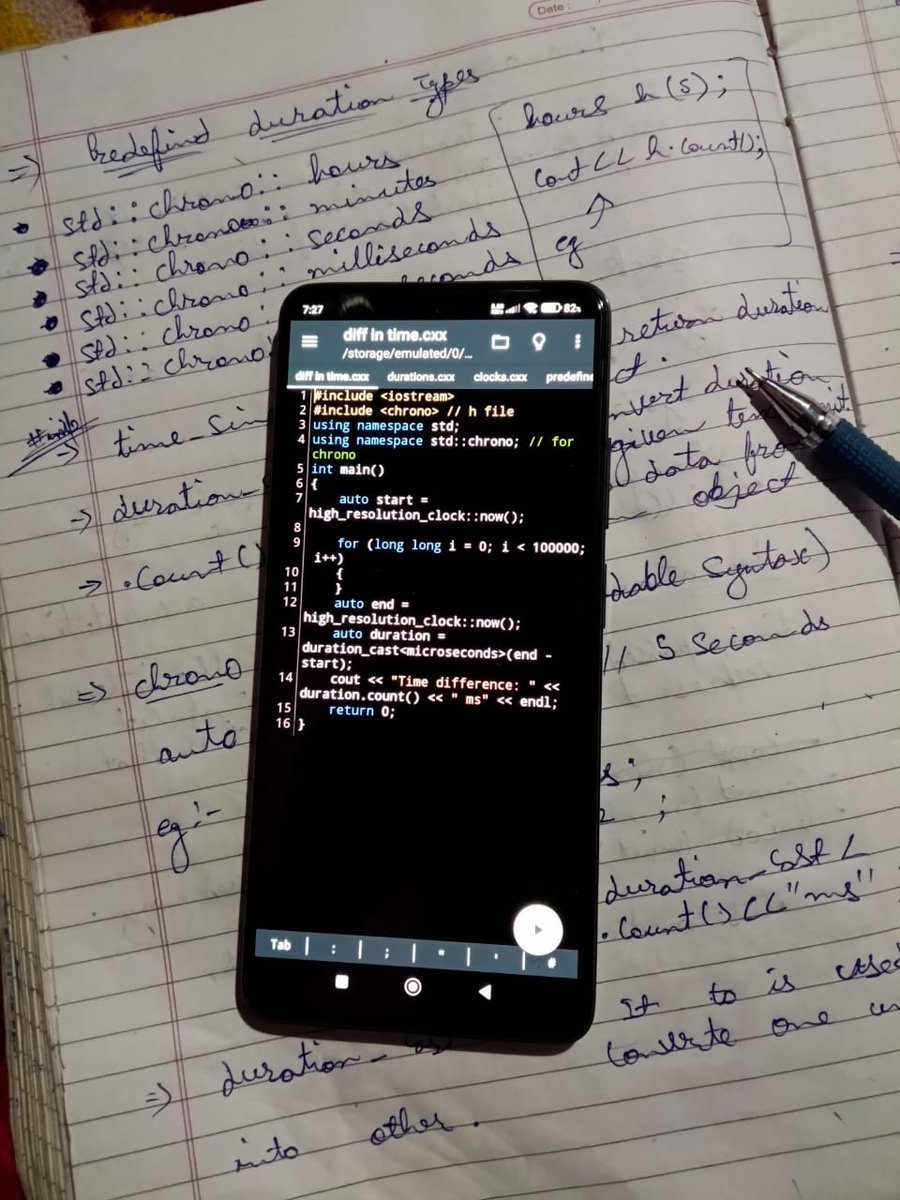 Date :
=> Predefind duration Types
• std::chrono:: hours
• std::chrono:: minutes
• std::chrono:: seconds
• std::chrono:: milliseconds
• std::chrono:
• std::chrono:
hours h(5);
cout << h.count();
eg
#info
return duration
duration
given
data from
object
-> duration_
-> .Count()
Syntax)
=> chrono
// 5 seconds
auto
eg :-
duration_
.count() << "ms"
=> duration_
It to is used
one
into other.
7:27
82%
diff in time.cxx
/storage/emulated/0/...
diff in time.cxx durations.cxx clocks.cxx predefine
1 #include <iostream>
2 #include <chrono> // h file
3 using namespace std;
4 using namespace std::chrono; // for
chrono
5 int main()
6 {
7 auto start =
high_resolution_clock::now();
8
9 for (long long i = 0; i < 100000;
i++)
10 {
11 }
12 auto end =
high_resolution_clock::now();
13 auto duration =
duration_cast<microseconds>(end -
start);
14 cout << "Time difference: " <<
duration.count() << " ms" << endl;
15 return 0;
16 }
Tab | : | ; | " | ' | #